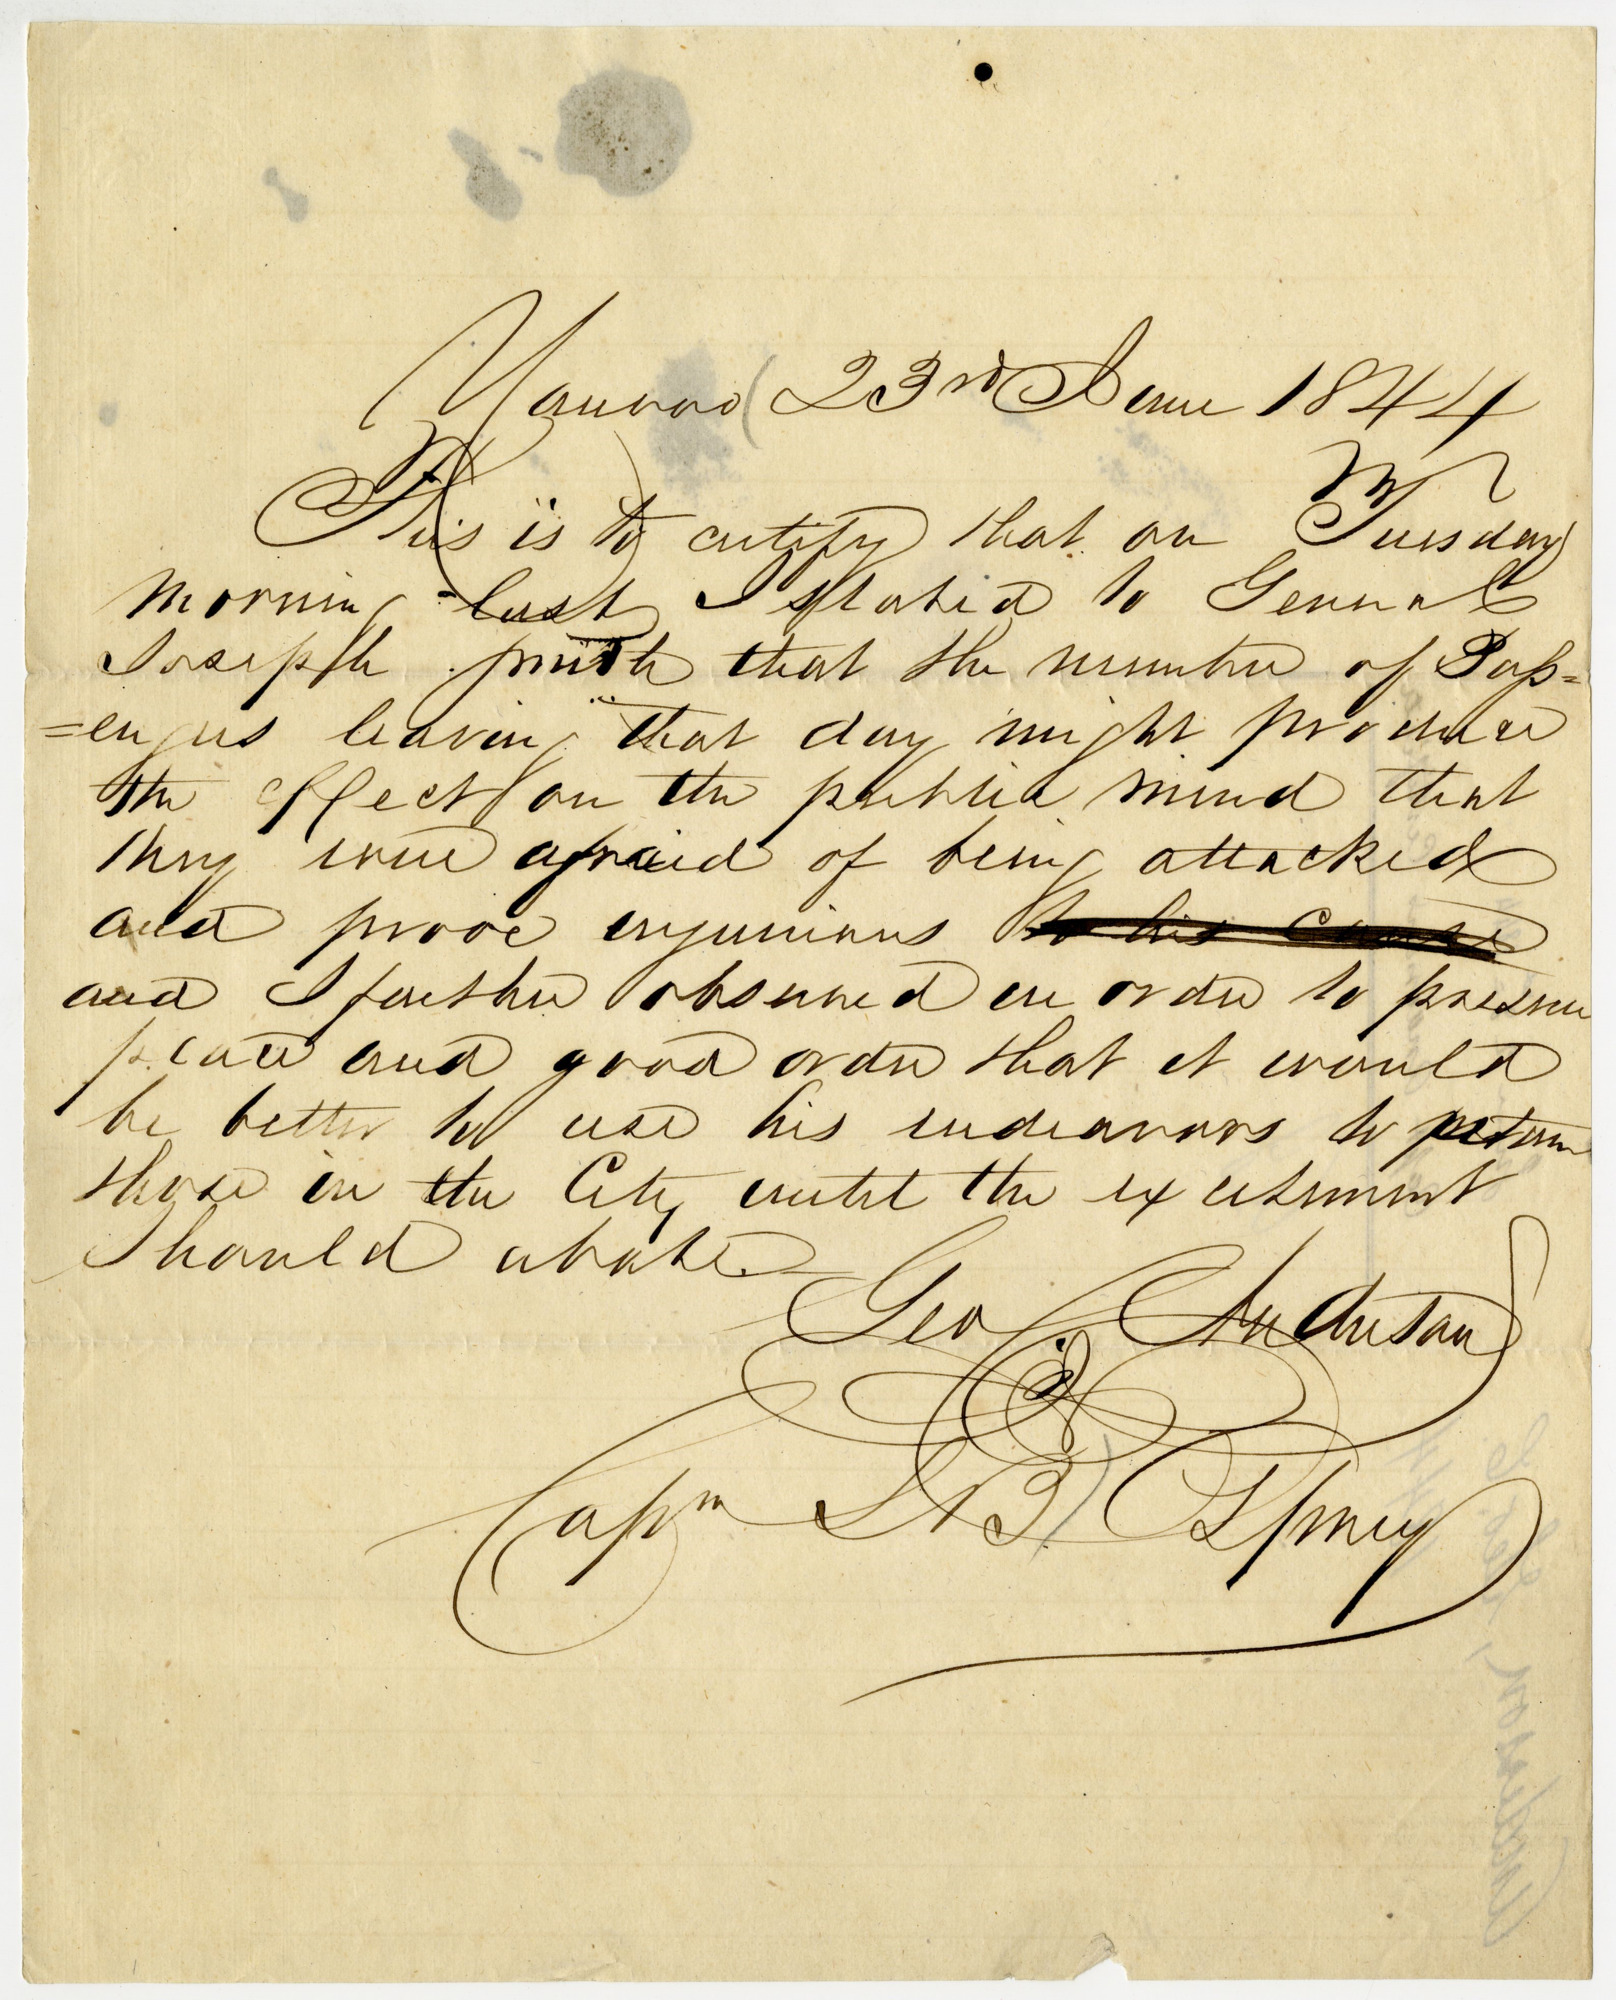 Nauvoo 23rd June 1844
This is to certify that on Tuesday
morning last I stated to General
Joseph Smith that the number of Pas=
=engers leaving that day might produce
the effect on the public mind that
they were afraid of being attacked
and prove injurious to his cause
and I further observed in order to preserve
peace and good order that it would
be better to use his endeavors to retain
those in the City until the excitement
should abate.
Geo Anderson
Capn St B